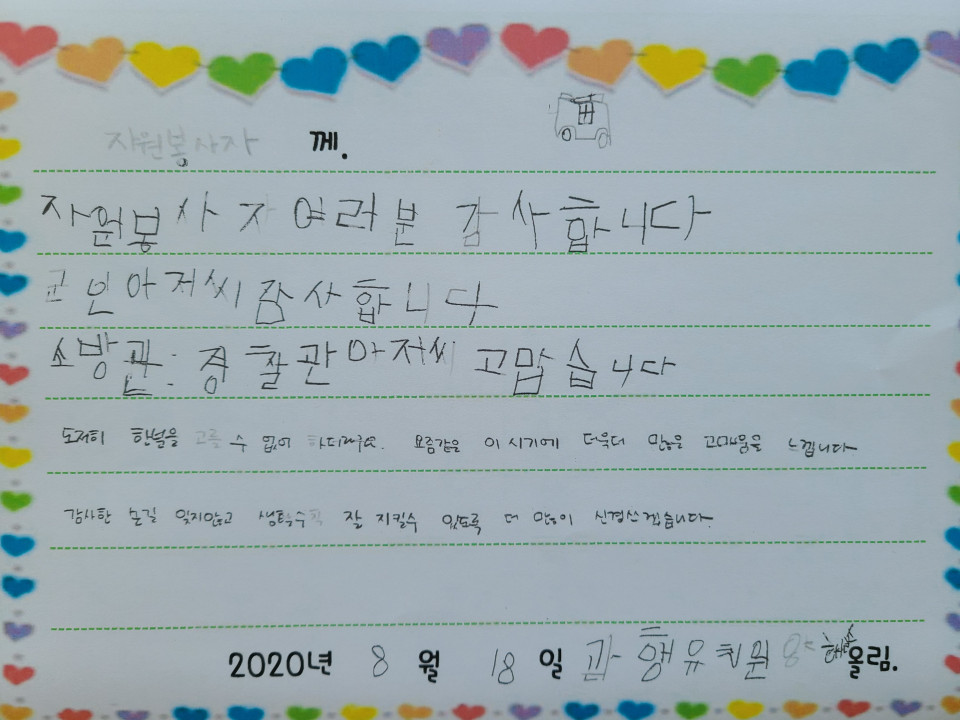 자원봉사자 께.
자원봉사자 여러분 감사합니다
군인아저씨 감사합니다
소방관. 경찰관아저씨 고맙습니다
도저히 한분을 고를 수 없어 하더라구요. 요즘같은 이 시기에 더욱더 많은 고마움을 느낍니다
감사한 손길 잊지않고 생활수칙 잘 지킬수 있도록 더 많이 신경쓰겠습니다.
2020년 8월 18일 유치원 올림.